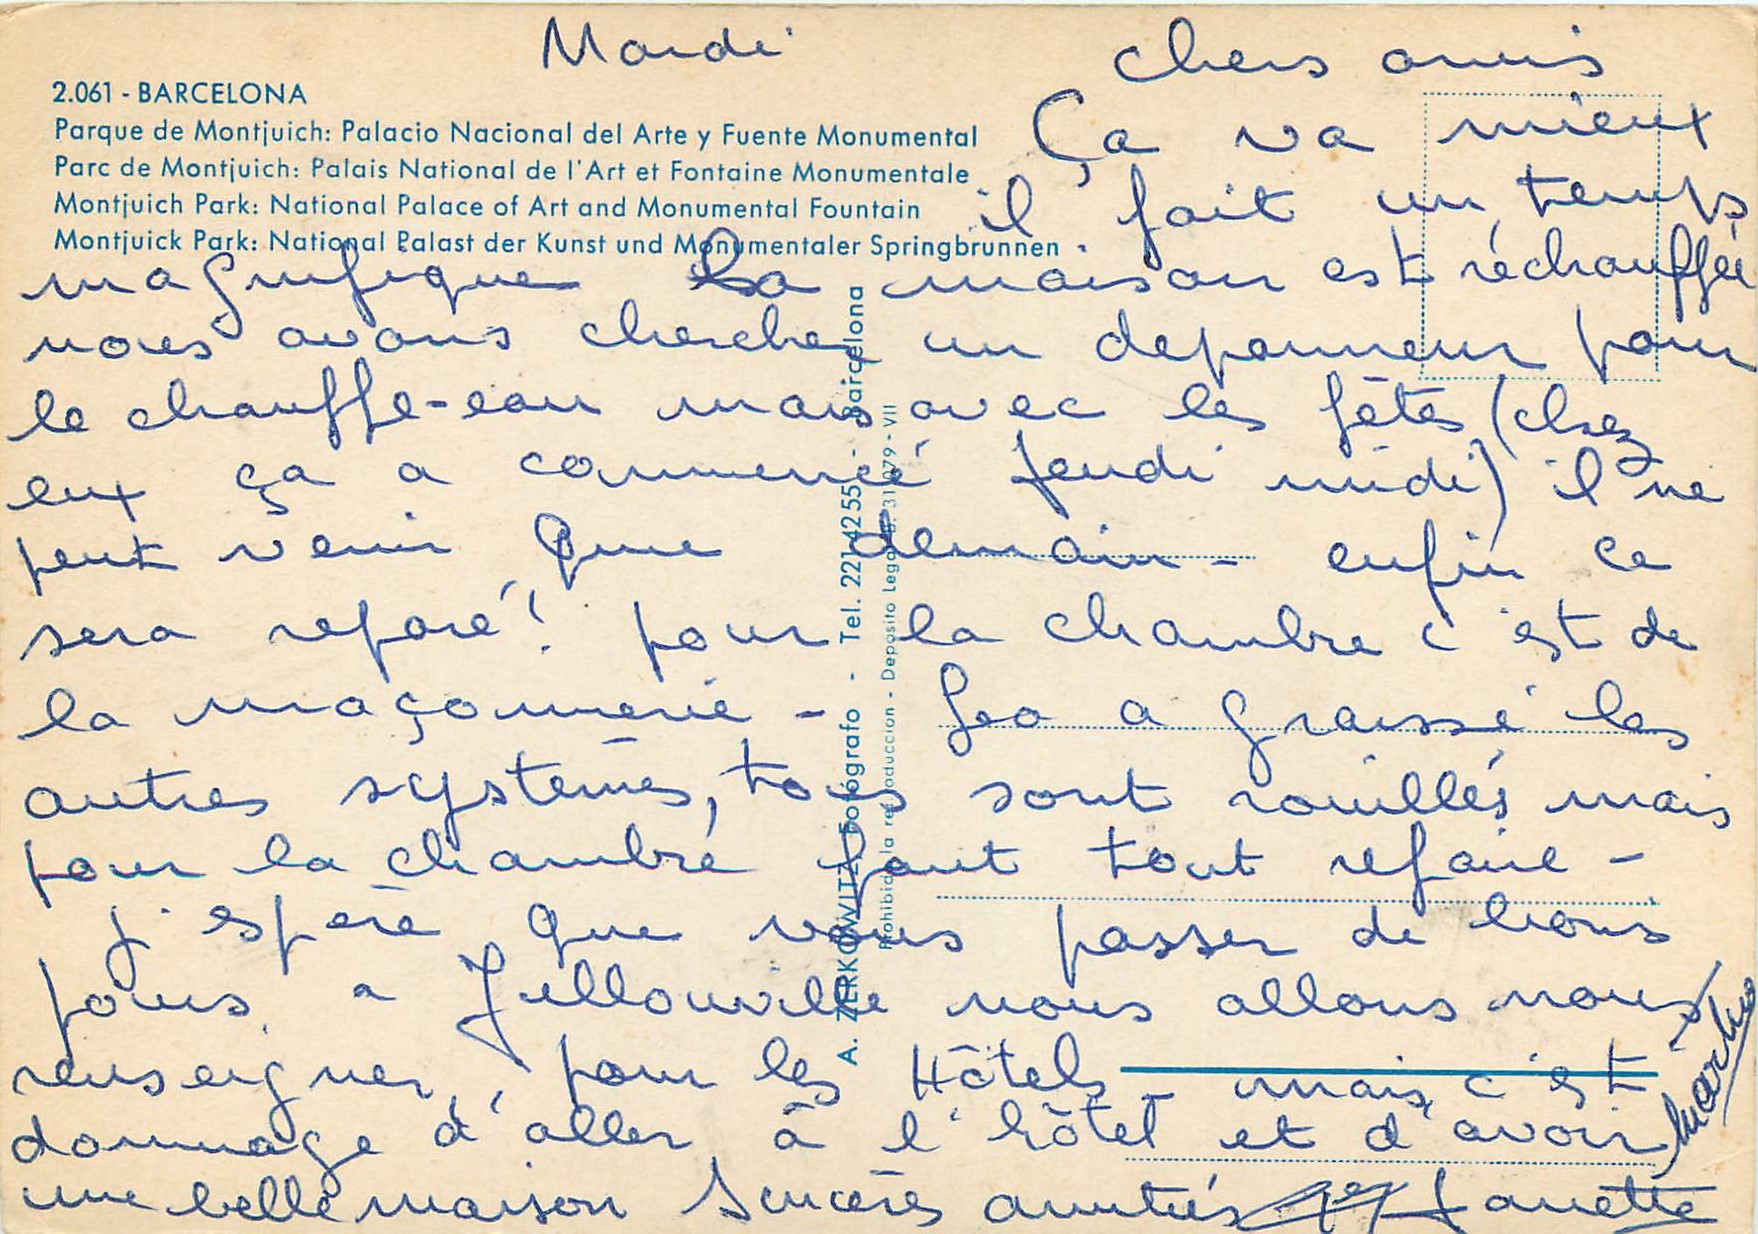 Mardi
chers amis
2.061 - BARCELONA
Parque de Montjuich: Palacio Nacional del Arte y Fuente Monumental
Parc de Montjuich: Palais National de l'Art et Fontaine Monumentale
Montjuich Park: National Palace of Art and Monumental Fountain
Montjuick Park: National Palast der Kunst und Monumentaler Springbrunnen
Ça va mieux
il fait un temps
magnifique La maison est réchauffée
nous avons chercher un depanneur pour
le chauffe-eau mais avec les fêtes (chez
eux ça a commencé jeudi midi) il ne
peut venir que demain - enfin ce
sera reparé! pour la chambre c'est de
la maçonnerie - Geo a graissé les
autres systèmes, tous sont rouillés mais
pour la chambre faut tout refaire -
j'espère que vous passer de bons
jours a Jullouville nous allons nous
renseigner, pour les Hôtels - mais c'est
dommage d'aller à l'hôtel et d'avoir
une belle maison Sincères amitiés Janette
A. ZERKOWITZ Fotógrafo - Tel. 221 4255 - Barcelona
Prohibida la reproduccion - Deposito Legal B. 31.079 - VII